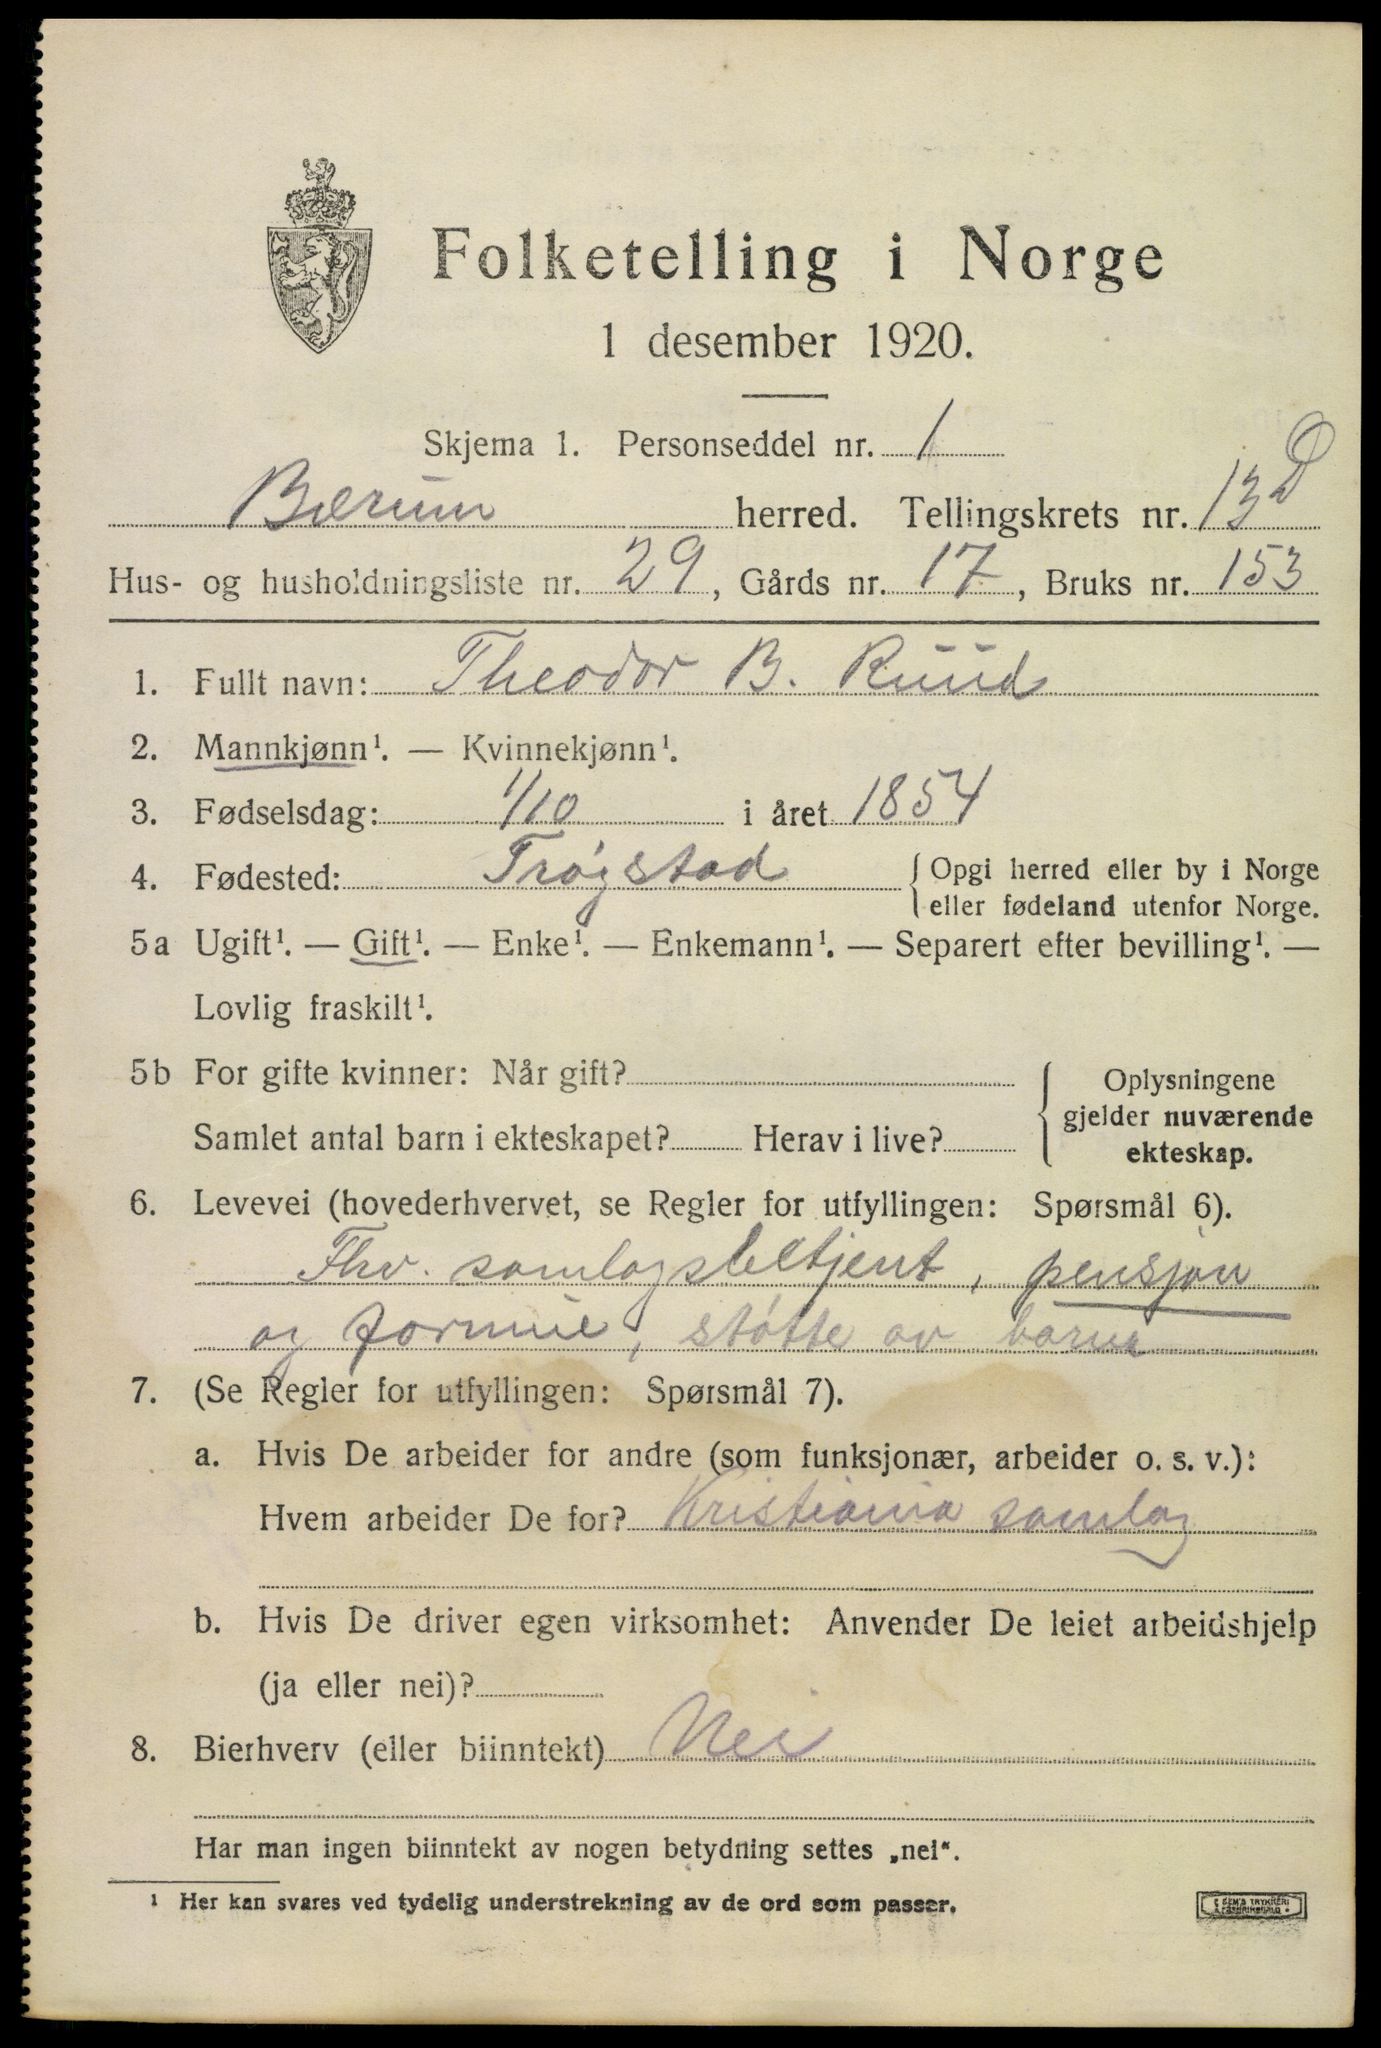 Folketelling i Norge
1 desember 1920.
Skjema 1. Personseddel nr. 1
Bærum herred. Tellingskrets nr. 13 D
Hus- og husholdningsliste nr. 29, Gårds nr. 17, Bruks nr. 153
1. Fullt navn: Theodor B. Ruud
2. Mannkjønn¹. — Kvinnekjønn¹.
3. Fødselsdag: 1/10 i året 1854
4. Fødested: Trøgstad { Opgi herred eller by i Norge
eller fødeland utenfor Norge.
5a Ugift¹. — Gift¹. — Enke¹. — Enkemann¹. — Separert efter bevilling¹. —
Lovlig fraskilt¹.
5b For gifte kvinner: Når gift? { Oplysningene
gjelder nuværende
Samlet antal barn i ekteskapet? Herav i live? ekteskap.
6. Levevei (hovederhvervet, se Regler for utfyllingen: Spørsmål 6).
Fhv. samlagsbetjent, pensjon
og formue, støtte av barna
7. (Se Regler for utfyllingen: Spørsmål 7).
a. Hvis De arbeider for andre (som funksjonær, arbeider o. s. v.):
Hvem arbeider De for? Kristiania samlag
b. Hvis De driver egen virksomhet: Anvender De leiet arbeidshjelp
(ja eller nei)?
8. Bierhverv (eller biinntekt) Nei
Har man ingen biinntekt av nogen betydning settes „nei“.
¹ Her kan svares ved tydelig understrekning av de ord som passer.